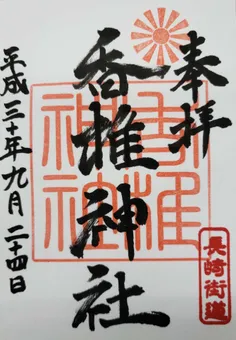 奉拝
香椎神社
平成三十年九月二十四日
香椎
神社
長崎街道